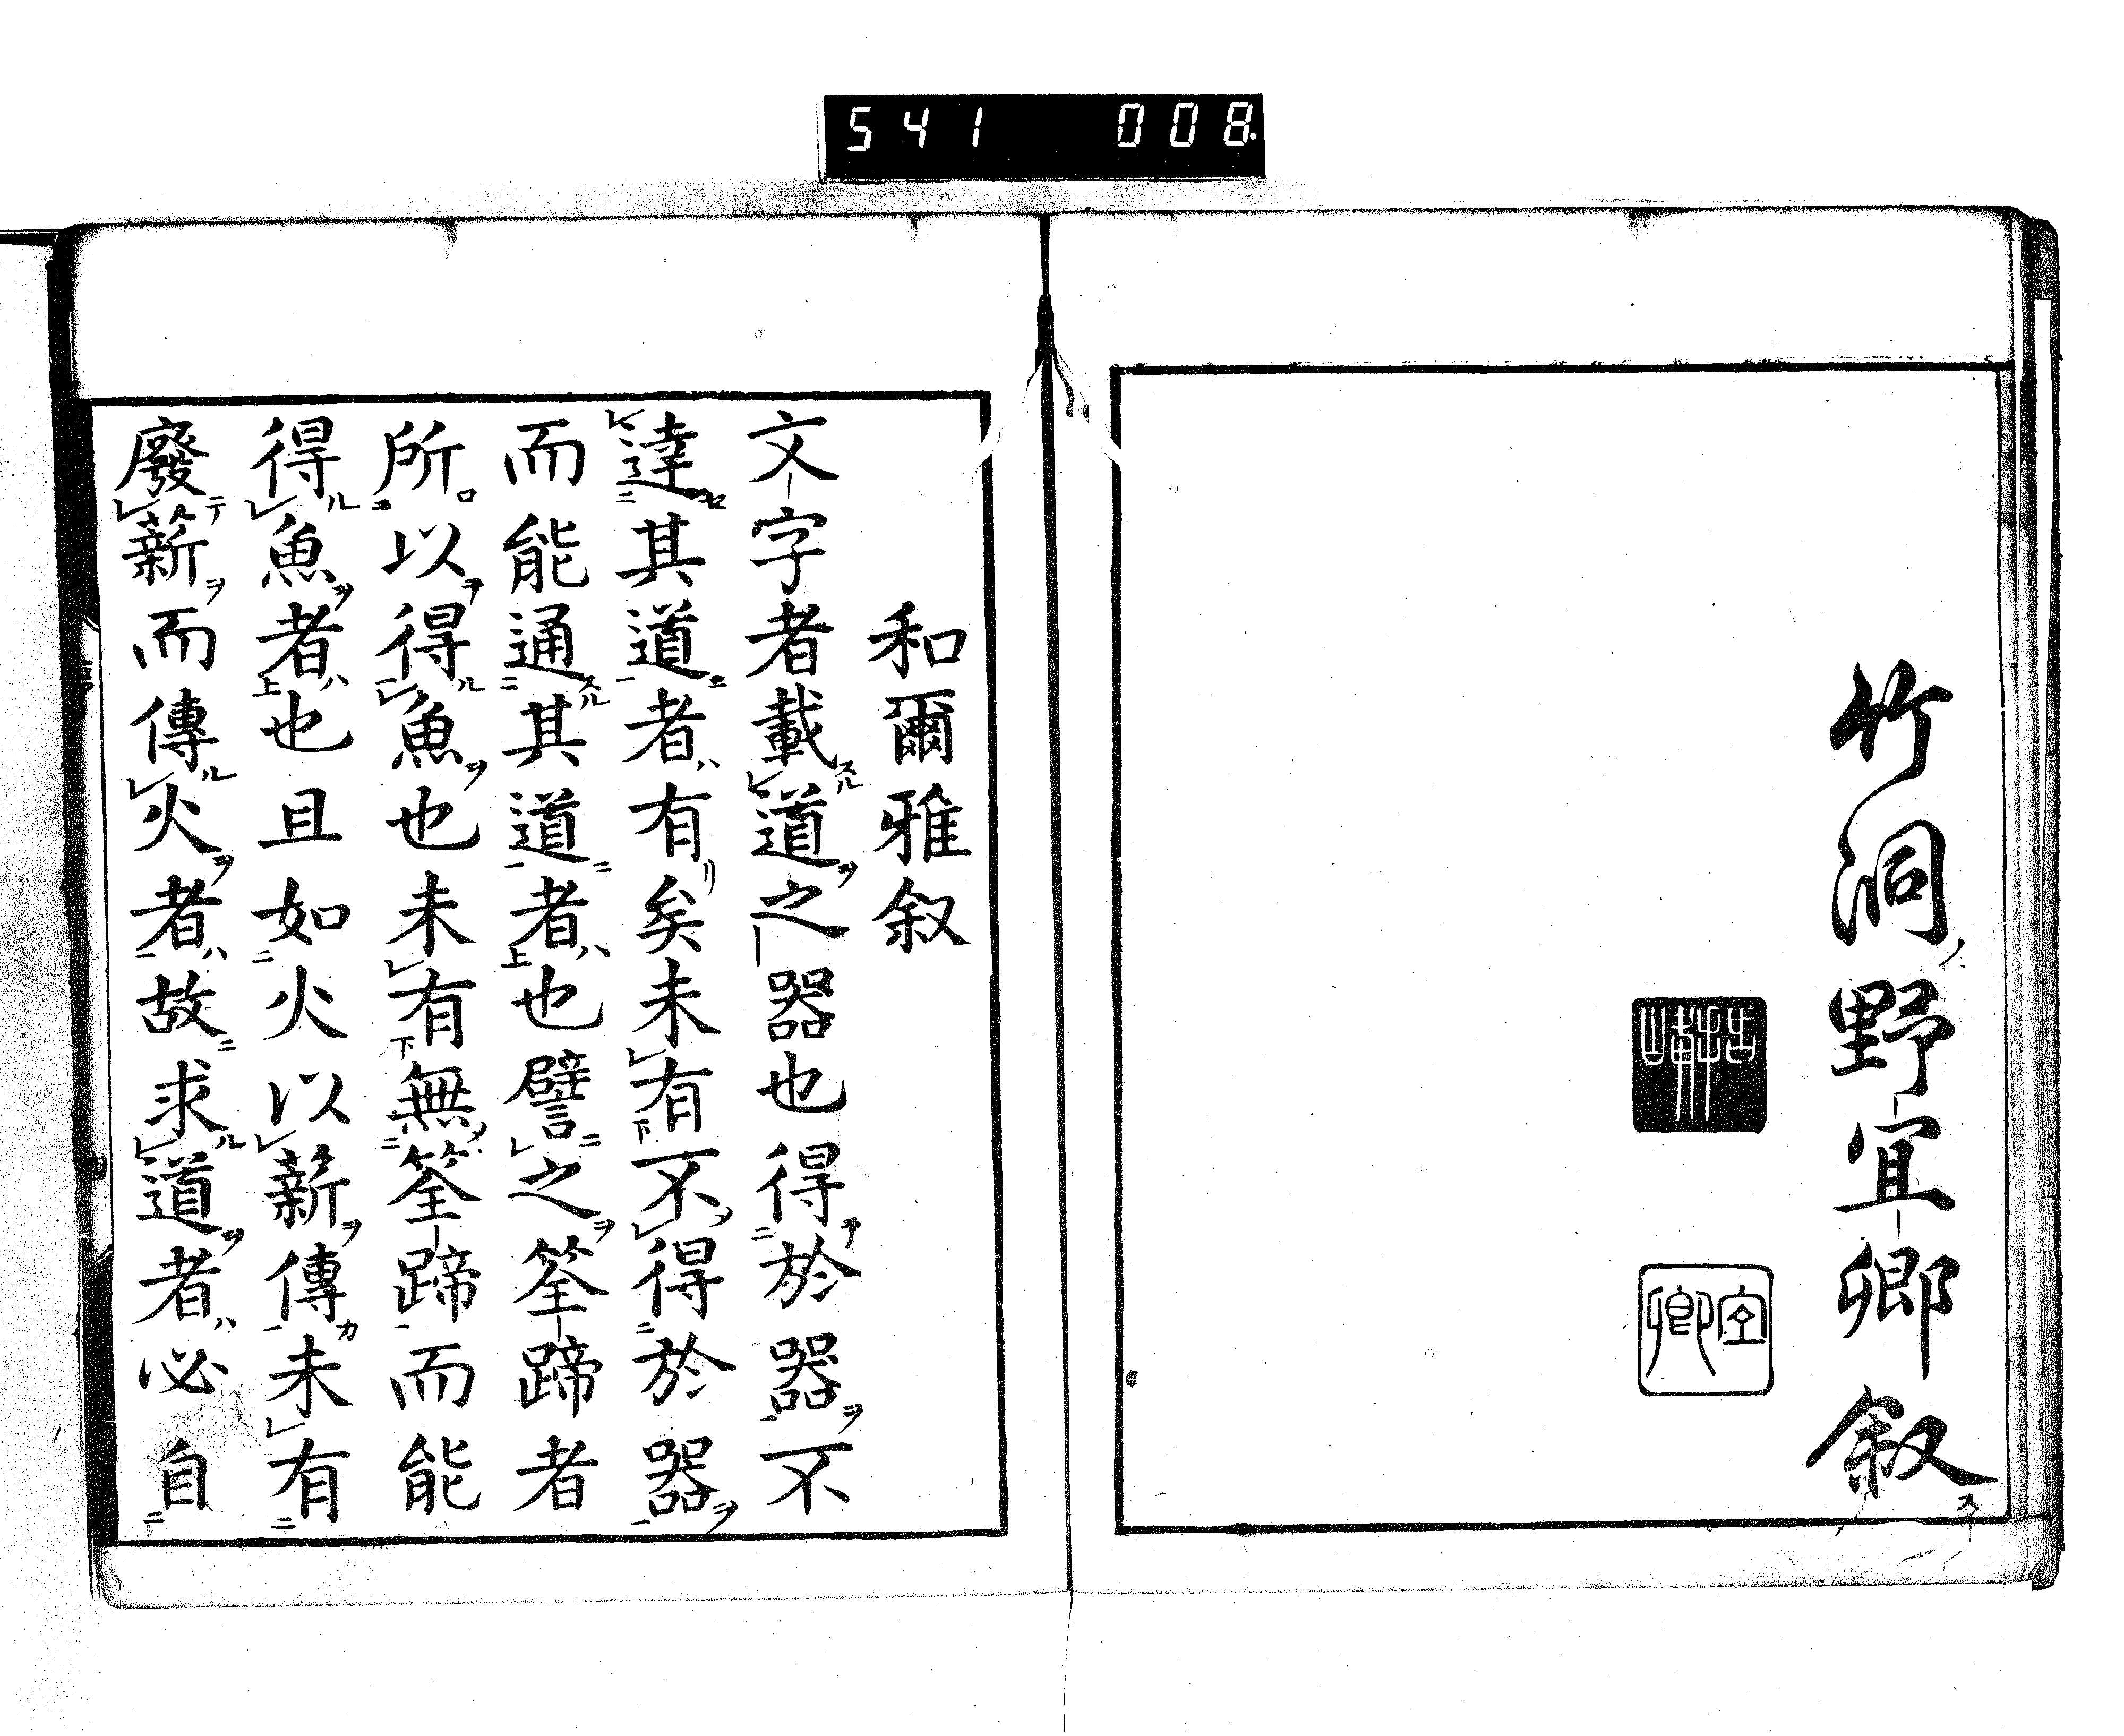 541 008
竹洞野宜卿叙
和爾雅叙
文字者載道之器也得於器不
達其道者有矣未有不得於器
而能通其道者也譬之筌蹄者
所以得魚也未有無筌蹄而能
得魚者也且如火以薪傳未有
廢薪而傳火者故求道者必自